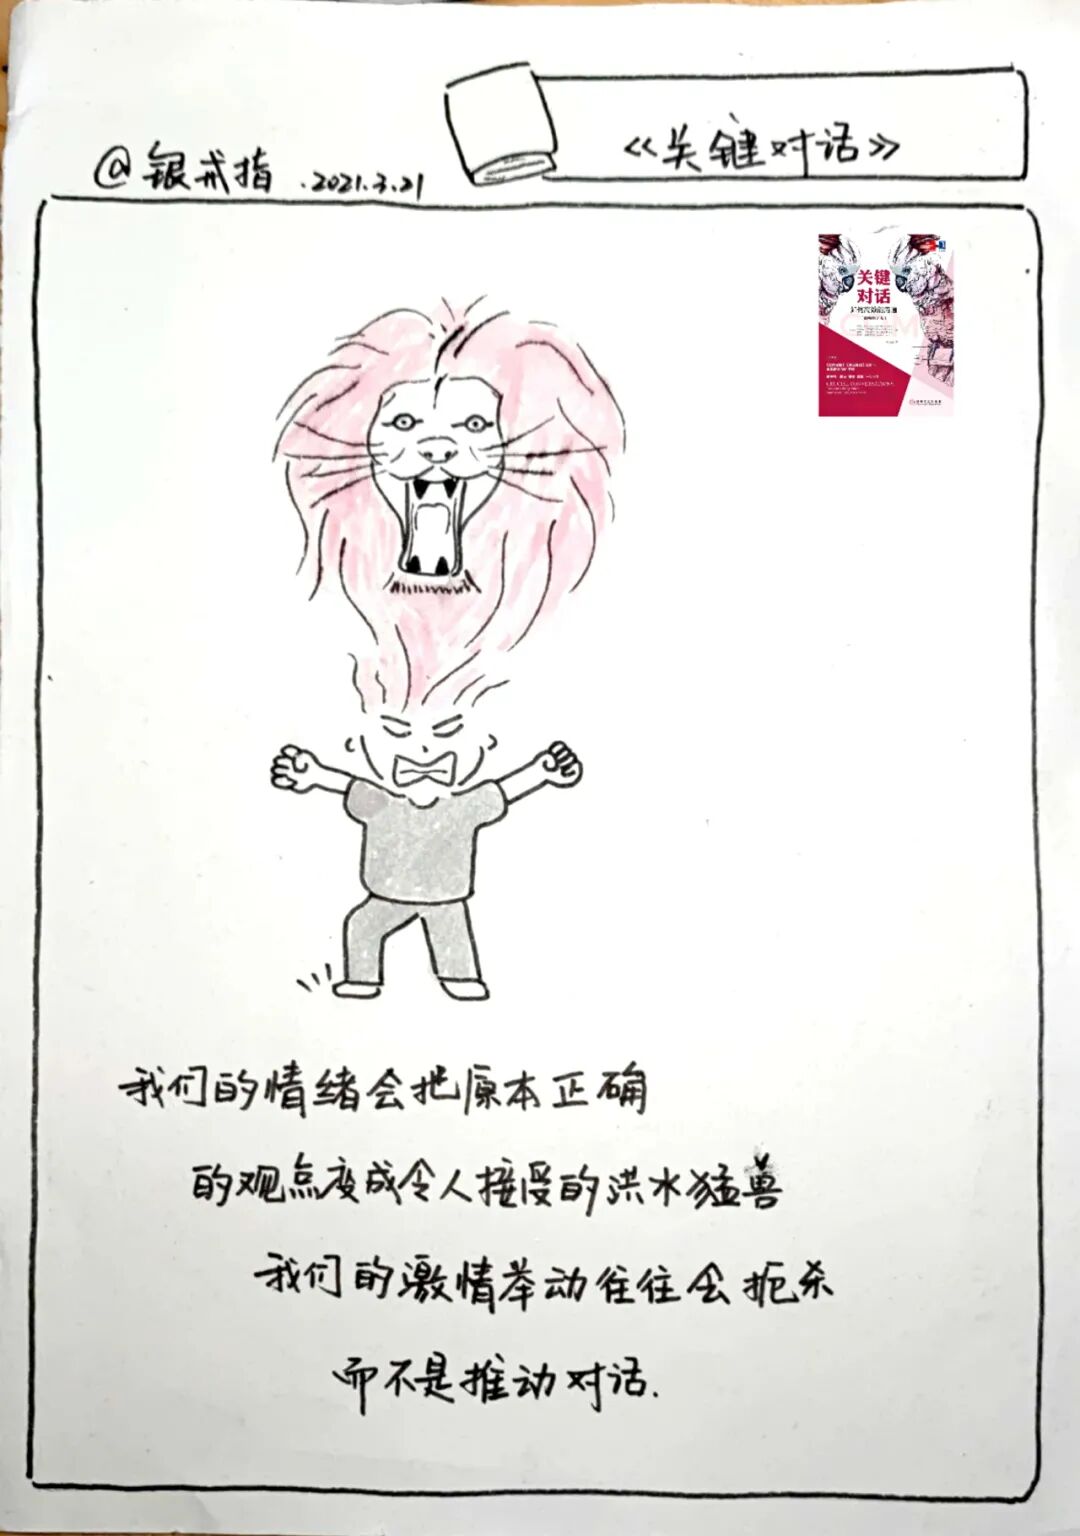 @银戒指 .2021.3.21
《关键对话》
关键
对话
我们的情绪会把原本正确
的观点变成令人接受的洪水猛兽
我们的激情举动往往会扼杀
而不是推动对话.